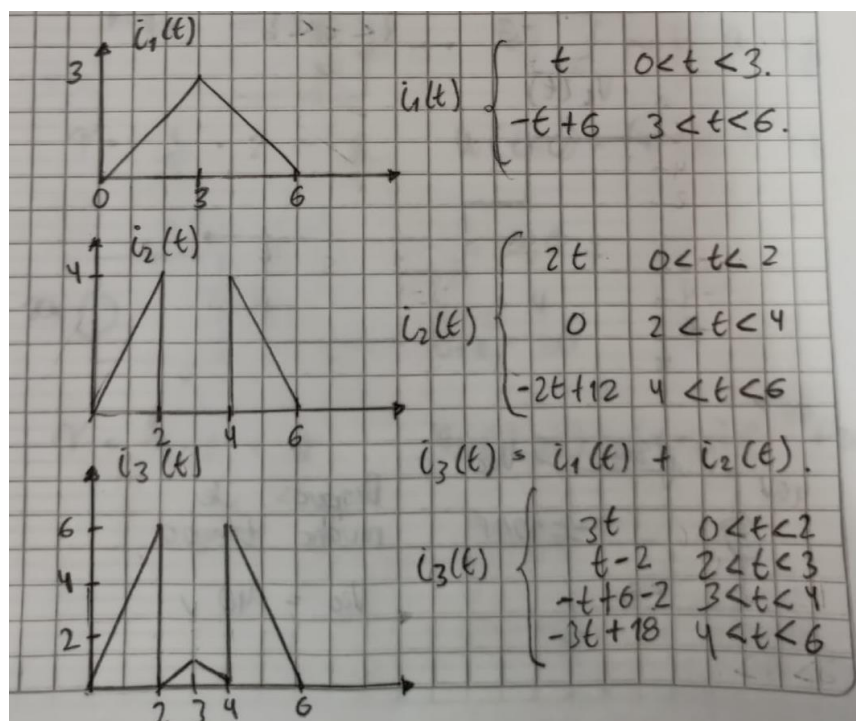 i₁(t)
3
0 3 6
i₁(t) { t 0 < t < 3.
-t+6 3 < t < 6.
i₂(t)
4
2 4 6
i₂(t) { 2t 0 < t < 2
0 2 < t < 4
-2t+12 4 < t < 6
i₃(t)
6
4
2
2 3 4 6
i₃(t) = i₁(t) + i₂(t).
i₃(t) { 3t 0 < t < 2
t-2 2 < t < 3
-t+6-2 3 < t < 4
-3t+18 4 < t < 6